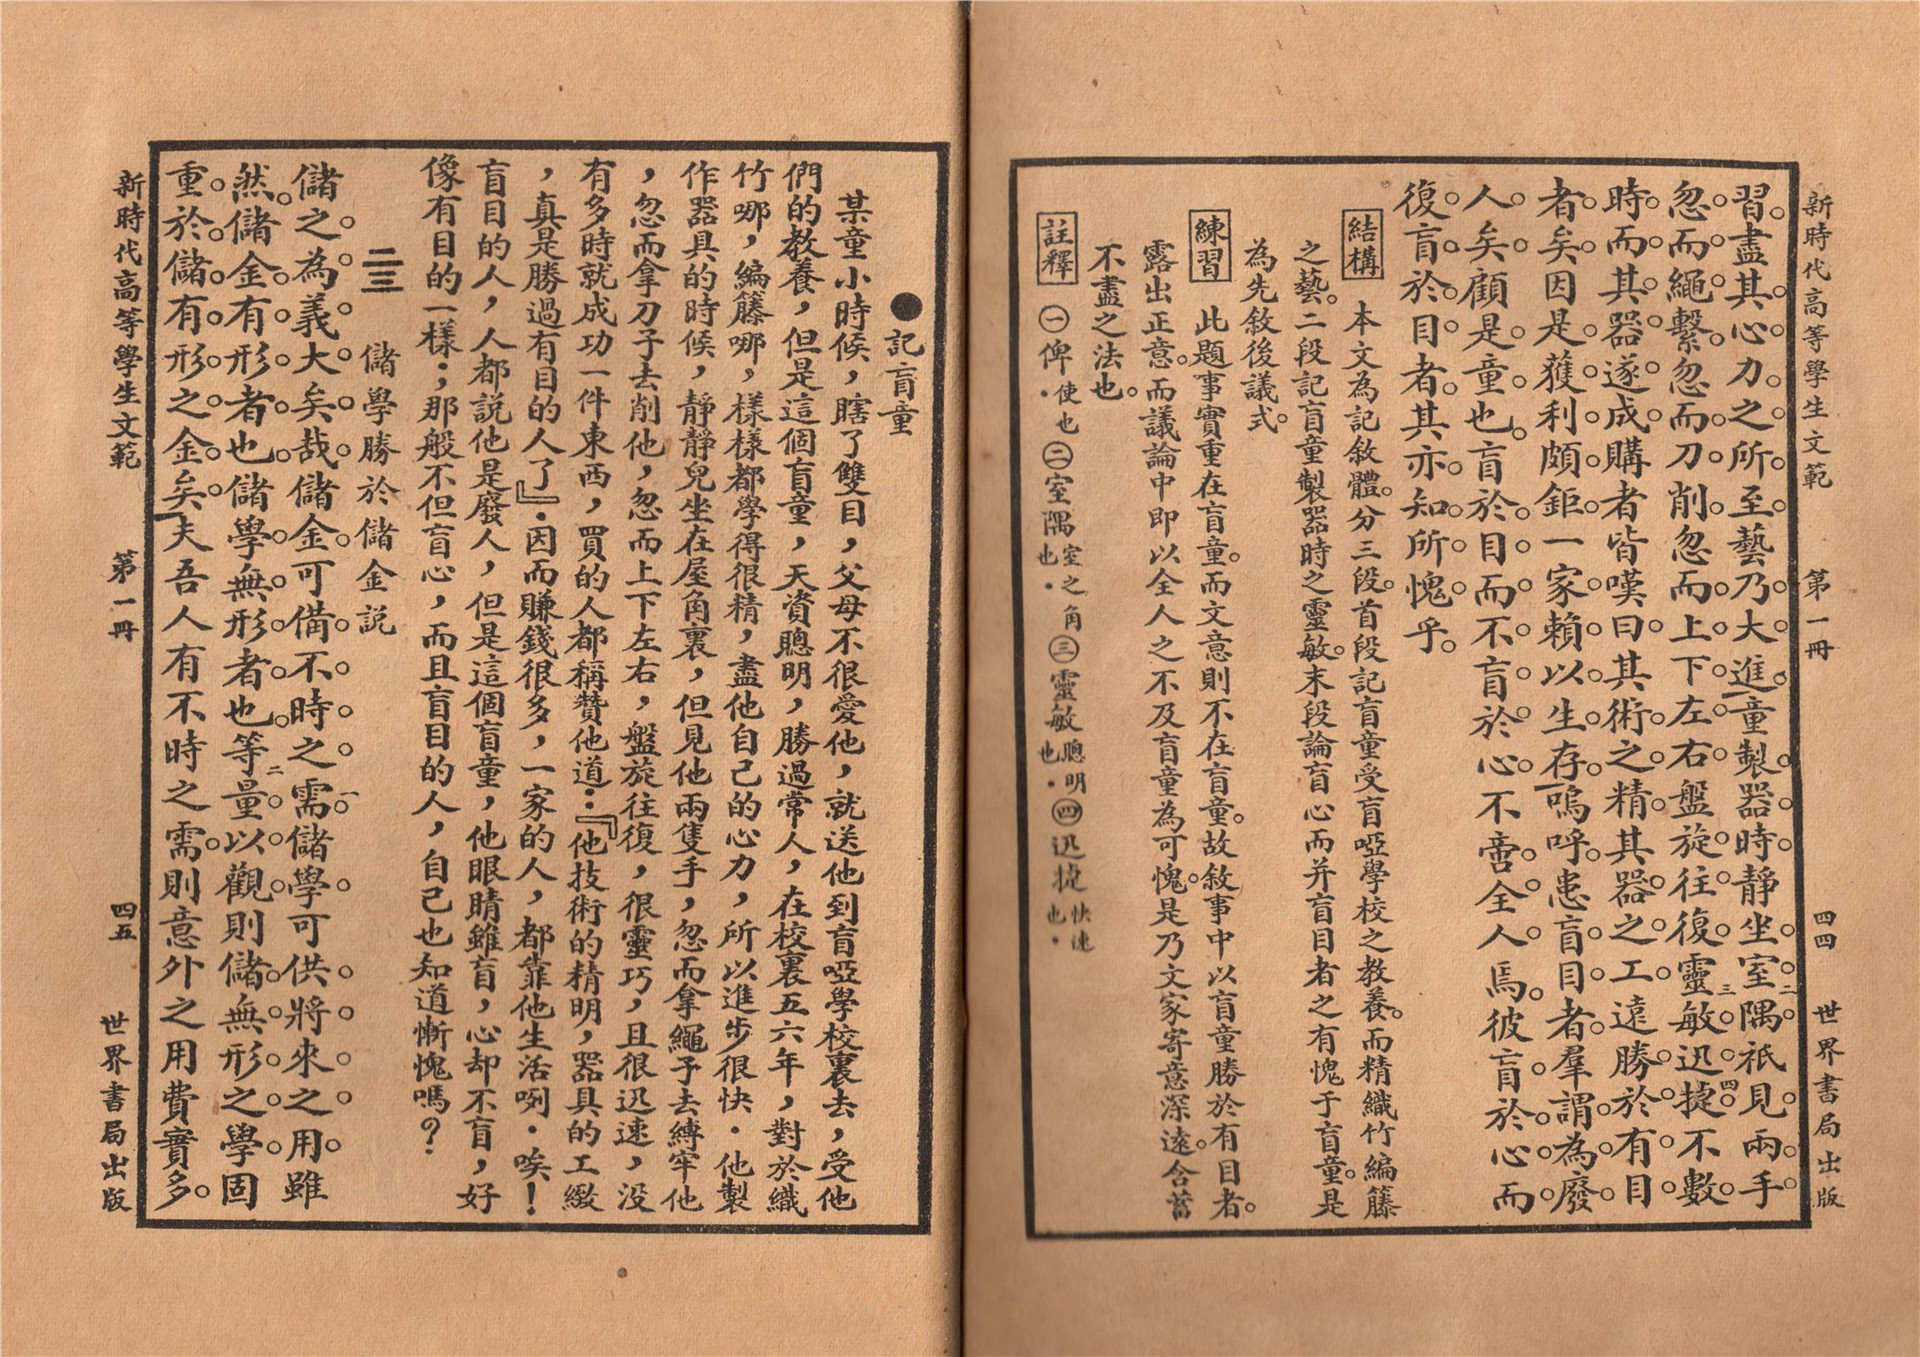 新時代高等學生文範 第一冊 四四 世界書局出版
習盡其心力之所至藝乃大進童製器時靜坐室隅二祇見兩手
忽而繩繫忽而刀削忽而上下左右盤旋往復靈敏三迅捷四不數
時而其器遂成購者皆嘆曰其術之精其器之工遠勝於有目
者矣因是獲利頗鉅一家賴以生存嗚呼患盲目者羣謂為廢
人矣顧是童也盲於目而不盲於心不啻全人焉彼盲於心而
復盲於目者其亦知所愧乎
結構 本文為記敘體。分三段。首段記盲童受盲啞學校之教養。而精織竹編籐
之藝。二段記盲童製器時之靈敏。末段論盲心而并盲目者之有愧于盲童。是
為先敘後議式。
練習 此題事實重在盲童。而文意則不在盲童。故敘事中以盲童勝於有目者。
露出正意。而議論中即以全人之不及盲童為可愧。是乃文家寄意深遠。含蓄
不盡之法也。
註釋 ㊀俾使也.㊁室隅室之角也.㊂靈敏聰明也.㊃迅捷快速也.
●記盲童
某童小時候，瞎了雙目，父母不很愛他，就送他到盲啞學校裏去，受他
們的教養，但是這個盲童，天資聰明，勝過常人，在校裏五六年，對於織
竹哪，編籐哪，樣樣都學得很精，盡他自己的心力，所以進步很快．他製
作器具的時候，靜靜兒坐在屋角裏，但見他兩隻手，忽而拿繩子去縛牢他
，忽而拿刀子去削他，忽而上下左右，盤旋往復，很靈巧，且很迅速，没
有多時就成功一件東西，買的人都稱贊他道：『他技術的精明，器具的工緻
，真是勝過有目的人了』．因而賺錢很多，一家的人，都靠他生活咧．唉！
盲目的人，人都說他是廢人，但是這個盲童，他眼睛雖盲，心却不盲，好
像有目的一樣；那般不但盲心，而且盲目的人，自己也知道慚愧嗎？
二三 儲學勝於儲金説
儲之為義大矣哉儲金可備不時之需一儲學可供將來之用雖
然儲金有形者也儲學無形者也等量二以觀則儲無形之學固
重於儲有形之金矣夫吾人有不時之需則意外之用費實多
新時代高等學生文範 第一冊 四五 世界書局出版